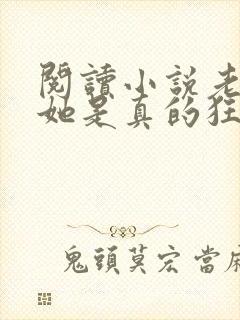 閱讀小說老
她是真的狂
鬼頭莫宏當麻